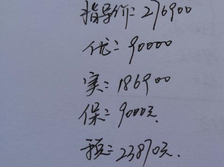 指导价：276900
优：90000
实：186900
保：9000元
税：23890元.